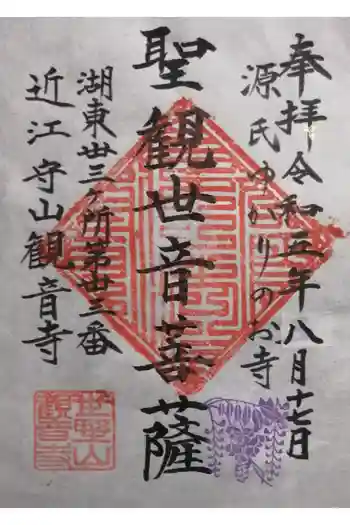 奉拝 令和五年八月十七日
源氏ゆかりのお寺
聖観世音菩薩
湖東廿三ヶ所第廿三番
近江守山観音寺